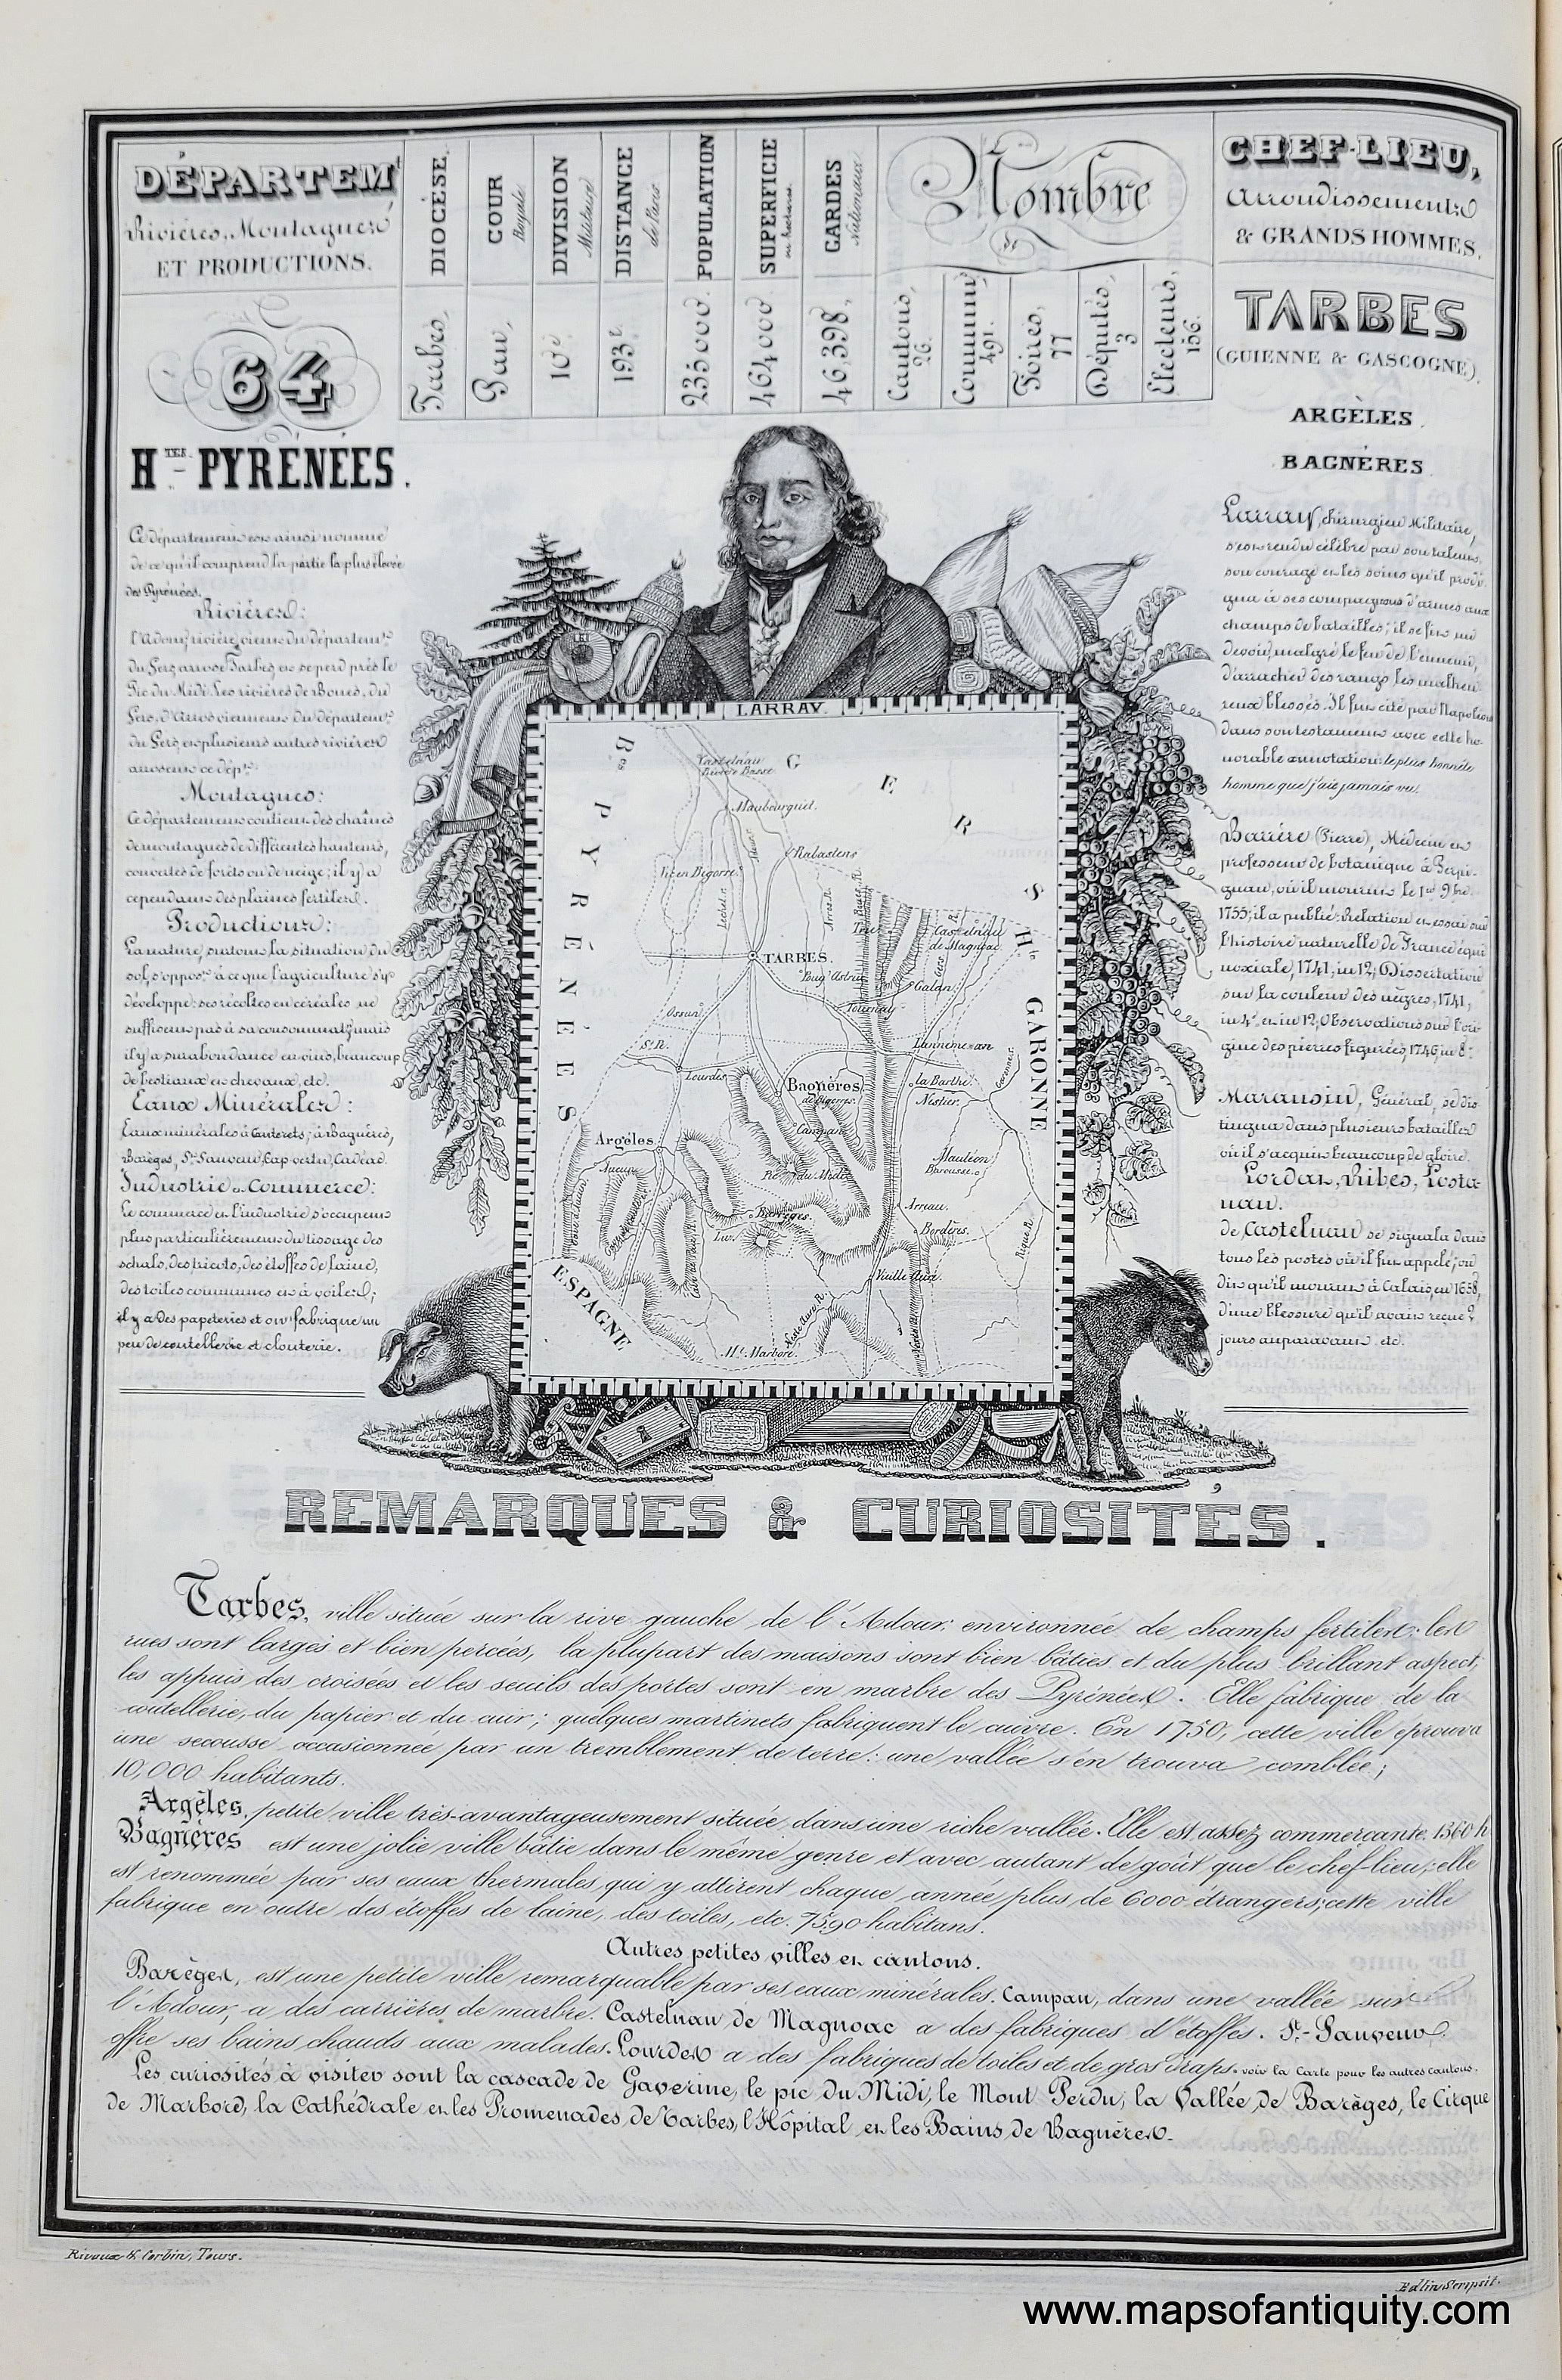 DÉPARTEMᵗ
Rivières, Montagnes
ET PRODUCTIONS.
DIOCÈSE.
Tarbes,
COUR
Royale
Pau,
DIVISION
Militaire
10ᵉ
DISTANCE
de Paris
193ˡ
POPULATION
235000.
SUPERFICIE
en hectares.
464000.
GARDES
Nationaux.
46,398,
Nombre
de
Cantons,
26.
Communes
491.
Foires,
77
Députés,
3
Electeurs,
156.
CHEF-LIEU,
Arrondissements
& GRANDS HOMMES.
64
Hᵀᴱˢ- PYRÉNÉES.
Ce département est ainsi nommé
de ce qu'il comprend la partie la plus élevée
des Pyrénées.
Rivières:
l'Adour, rivière, vient du départemᵗ
du Gers, arrose Tarbes, et se perd près le
Pic du Midi. Les rivières de Boues, du
Gers, d'Arros viennent du départemᵗ
du Gers, et plusieurs autres rivières
arrosent ce dépᵗ
Montagnes:
Ce département contient des chaînes
de montagnes de différentes hauteurs,
couvertes de forêts ou de neige; il y a
cependant des plaines fertiles.
Productions:
La nature, surtout la situation du
sol, s'opposᵗ à ce que l'agriculture s'y
développe: ses récoltes en céréales ne
suffisent pas à sa consommatⁿ, mais
il y a surabondance en vins, beaucoup
de bestiaux et chevaux, etc.
Eaux Minérales:
Eaux minérales à Cauterets, à Bagnères,
Barèges, Sᵗ Sauveur, Cap-vertu, Cadéac.
Industrie et Commerce:
Le commerce et l'industrie s'occupent
plus particulièrement du tissage des
schals, des tricots, des étoffes de laine,
des toiles communes et à voiles;
il y a des papeteries et on fabrique un
peu de coutellerie et clouterie.
TARBES
(GUIENNE & GASCOGNE).
ARGÈLES.
BAGNÈRES.
Larray, chirurgien Militaire,
s'est rendu célèbre par son talent,
son courage et les soins qu'il prodi-
gua à ses compagnons d'armes aux
champs de batailles; il se fit un
devoir, malgré le feu de l'ennemi,
d'arracher des rangs les malheu-
reux blessés. Il fut cité par Napoléon
dans son testament avec cette ho-
norable annotation: le plus honnête
homme que j'aie jamais vu.
Barrère (Pierre), Médecin et
professeur de botanique à Perpi-
gnan, où il mourut le 1ᵉʳ 9bre
1755; il a publié: Relation et essai sur
l'histoire naturelle de France équi-
noxiale, 1741, in 12; Dissertation
sur la couleur des nègres, 1741,
in 4° et in 12; Observations sur l'ori-
gine des pierres figurées, 1746, in 8°.
Maransin, Général, se dis-
tingua dans plusieurs batailles
où il s'acquit beaucoup de gloire.
Lordat, Ribes, Costa-
nau.
de Castelnau se signala dans
tous les postes où il fut appelé; on
dit qu'il mourut à Calais, en 1658,
d'une blessure qu'il avait reçue ?
jours auparavant, etc.
LARRAY.
Bˢᵉˢ PYRÉNÉES
GERS
Hᵗᵉ GARONNE
ESPAGNE
Castelnau
Rivière Basse
Maubourguet.
Rabastens
Vic en Bigorre.
Adour
Lechez R.
Arros R.
Trie
Castelnau
de Magnoac
Gers
TARBES.
Galan
Tournay
Ossun
Sᵗ P.
Lourdes
Lannemezan
Bagnères
de Bigorre.
la Barthe
Nestier.
Garonne
Campan
Argèles
Aucun
Pic du Midi
Mauléon
Barousse
Barèges.
Luz
Arreau.
Bordères.
Vielle Aure.
Mᵗ Marboré.
REMARQUES & CURIOSITÉS.
Tarbes, ville située sur la rive gauche de l'Adour: environnée de champs fertiles: les
rues sont larges et bien percées, la plupart des maisons sont bien bâties et du plus brillant aspect;
les appuis des croisées et les seuils des portes sont en marbre des Pyrénées. Elle fabrique de la
coutellerie, du papier et du cuir; quelques martinets fabriquent le cuivre. En 1750, cette ville éprouva
une secousse occasionnée par un tremblement de terre: une vallée s'en trouva comblée;
10,000 habitants.
Argèles, petite ville très-avantageusement située dans une riche vallée. Elle est assez commerçante. 1360 h.
Bagnères est une jolie ville bâtie dans le même genre et avec autant de goût que le chef-lieu; elle
est renommée par ses eaux thermales qui y attirent chaque année plus de 6000 étrangers; cette ville
fabrique en outre des étoffes de laine, des toiles, etc. 7590 habitans.
Autres petites villes et cantons.
Barèges, est une petite ville remarquable par ses eaux minérales. Campan, dans une vallée sur
l'Adour, a des carrières de marbre. Castelnau de Magnoac a des fabriques d'étoffes. Sᵗ-Sauveur
offre ses bains chauds aux malades. Lourdes a des fabriques de toiles et de gros draps. voir la Carte pour les autres cantons.
Les curiosités à visiter sont la cascade de Gaverine, le pic du Midi, le Mont Perdu, la Vallée de Barèges, le Cirque
de Marbord, la Cathédrale et les Promenades de Tarbes, l'Hôpital et les Bains de Bagnères.
Rivaux & Corbin, Tours.
Edlin Scripsit.
www.mapsofantiquity.com